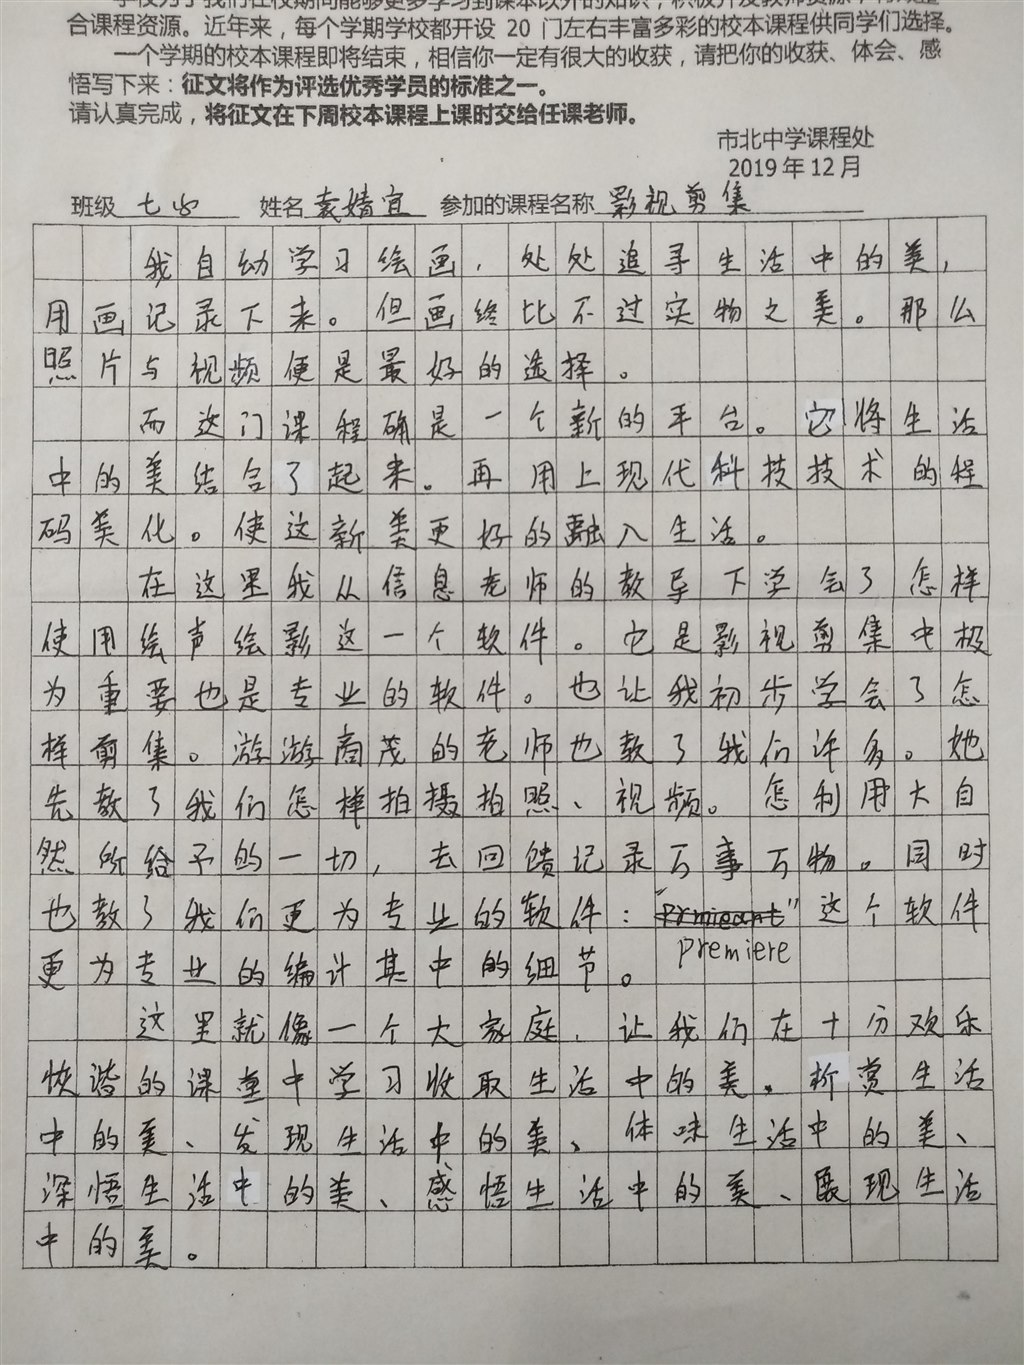 合课程资源。近年来，每个学期学校都开设 20 门左右丰富多彩的校本课程供同学们选择。
一个学期的校本课程即将结束，相信你一定有很大的收获，请把你的收获、体会、感
悟写下来：征文将作为评选优秀学员的标准之一。
请认真完成，将征文在下周校本课程上课时交给任课老师。
市北中学课程处
2019 年 12 月
班级 七 姓名 袁婧宜 参加的课程名称 影视剪集
我自幼学习绘画，处处追寻生活中的美，
用画记录下来。但画终比不过实物之美。那么
照片与视频便是最好的选择。
而这门课程确是一个新的平台。它将生活
中的美结合了起来。再用上现代科技技术的程
码美化。使这新美更好的融入生活。
在这里我从信息老师的教导下学会了怎样
使用绘声绘影这一个软件。它是影视剪集中极
为重要也是专业的软件。也让我初步学会了怎
样剪集。游游商茂的老师也教了我们许多。她
先教了我们怎样拍摄拍照、视频。怎利用大自
然所给予的一切，去回馈记录万事万物。同时
也教了我们更为专业的软件：" " 这个软件
premiere
更为专业的编计其中的细节。
这里就像一个大家庭，让我们在十分欢乐
恢谐的课堂中学习收取生活中的美。析赏生活
中的美、发现生活中的美、体味生活中的美、
深悟生活中的美、感悟生活中的美、展现生活
中的美。